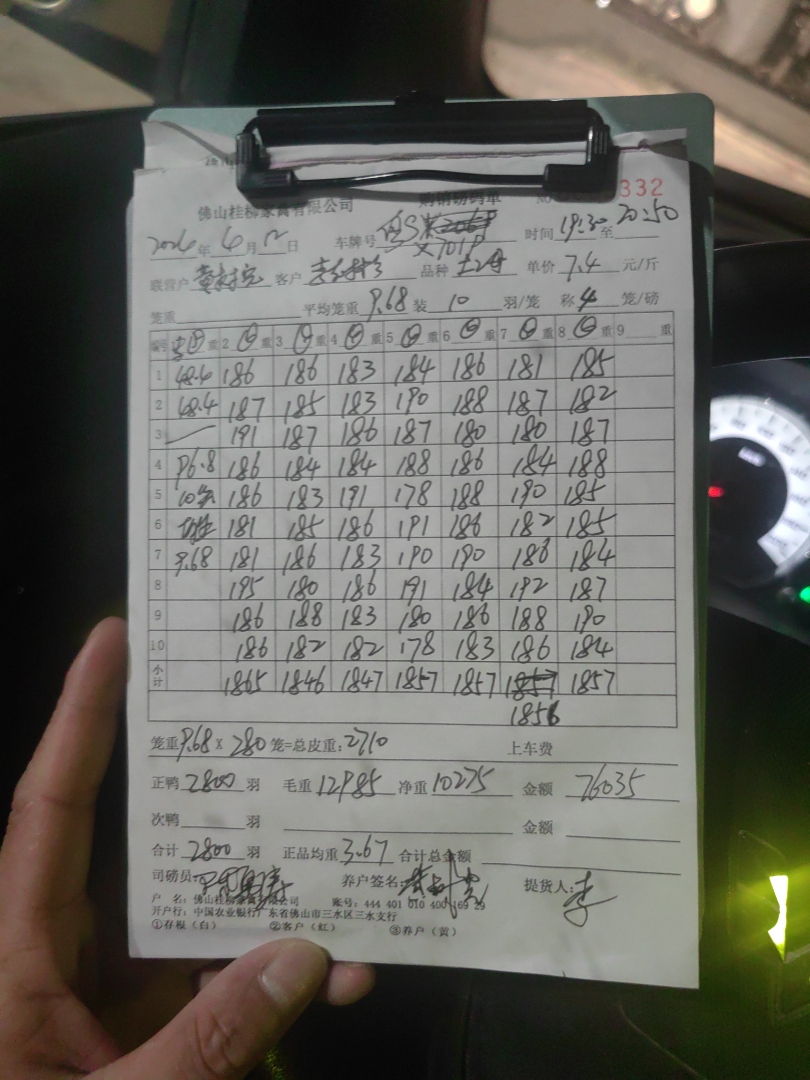 佛山桂柳家禽有限公司 购销磅码单 No 332
2024年6月12日 车牌号 时间 19:30 至 20:50
X701P
联营户 客户 品种 土2母 单价 7.4 元/斤
笼重 平均笼重 9.68 装 10 羽/笼 称 4 笼/磅
编号 重 2 重 3 重 4 重 5 重 6 重 7 重 8 重 9 重
1 48.4 186 186 183 184 186 181 185
2 48.4 187 185 183 190 188 187 182
3 191 187 186 187 180 180 187
4 96.8 186 184 184 188 186 184 188
5 10 186 183 191 178 188 190 185
6 181 185 186 191 186 182 185
7 9.68 181 186 183 190 190 186 184
8 195 180 186 191 184 192 187
9 186 188 183 180 186 188 190
10 186 182 182 178 183 186 184
小计 1865 1846 1847 1857 1857 1857 1857
1856
笼重 9.68 X 280 笼=总皮重: 2710 上车费
正鸭 2800 羽 毛重 12985 净重 10275 金额 76035
次鸭 羽 金额
合计 2800 羽 正品均重 3.67 合计总金额
司磅员: 养户签名: 提货人: 李
户 名: 佛山桂柳家禽有限公司 账号: 444 401 010 400 169 29
开户行: 中国农业银行广东省佛山市三水区三水支行
①存根（白） ②客户（红） ③养户（黄）